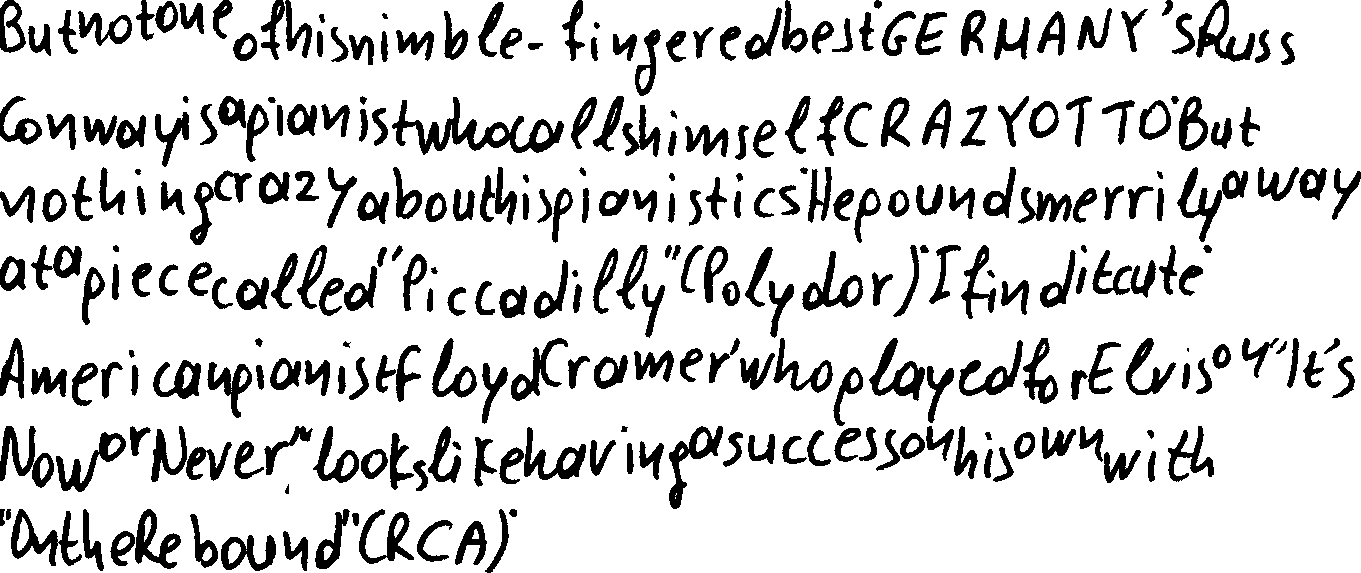 But not one of his nimble-fingered best. GERMANY's Russ
Conway is a pianist who calls himself CRAZY OTTO. But
nothing crazy about his pianistics. He pounds merrily away
at a piece called "Piccadilly" (Polydor). I find it cute.
American pianist Floyd Cramer, who played for Elvis on "It's
Now or Never", looks like having a success on his own with
"On the Rebound" (RCA).